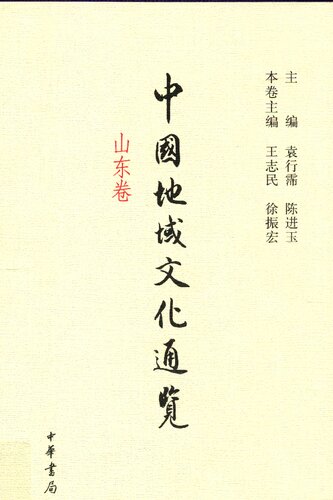 主　编　袁行霈　陈进玉
本卷主编　王志民　徐振宏
中國地域文化通覽
山东卷
中華書局